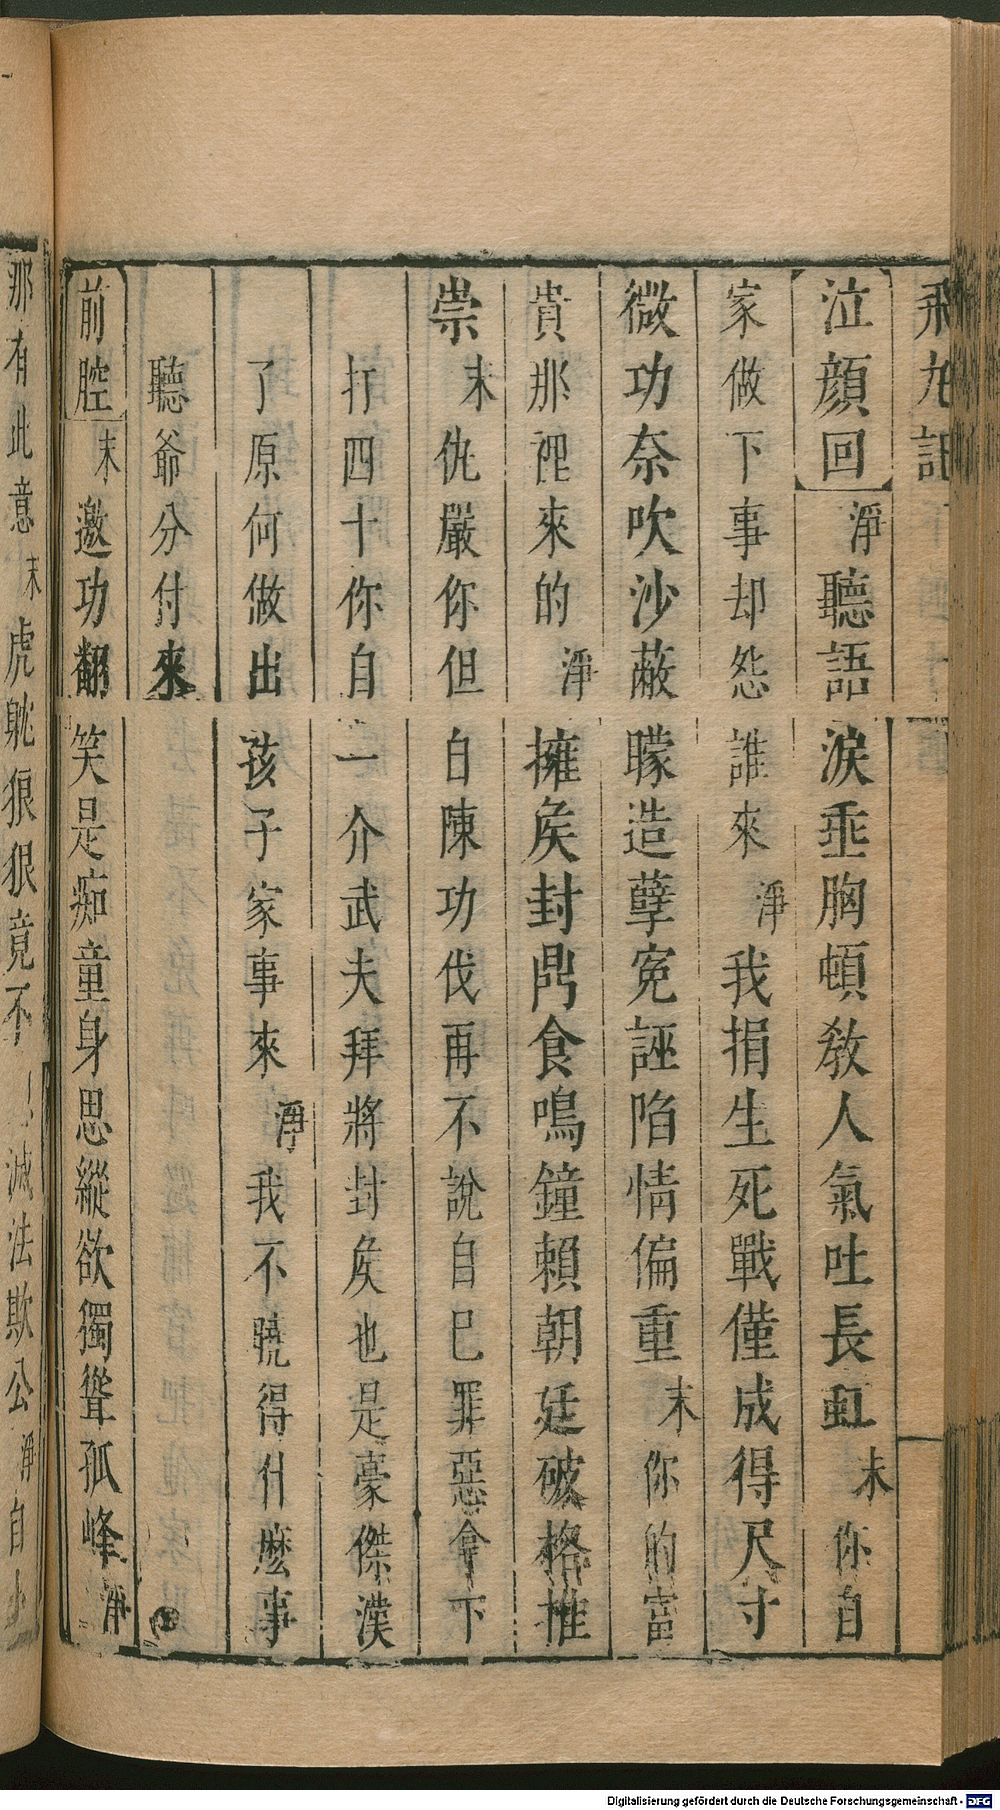 飛丸記
泣顔回 淨 聽語淚垂胸頓教人氣吐長虹 末 你自
家做下事却怨誰來 淨 我捐生死戰僅成得尺寸
微功奈吹沙蔽矇造孽寃誣陷情偏重 末 你的富
貴那裡來的 淨 擁矦封鼎食鳴鐘賴朝廷破格推
崇 末 仇嚴你但自陳功伐再不說自巳罪惡拿下
打四十你自一介武夫拜將封矦也是豪傑漢
了原何做出孩子家事來 淨 我不曉得什麽事
聽爺分付來
前腔 末 邀功翻笑是痴童身思縱欲獨聳孤峰 淨
那有此意 末 虎眈狼狠竟不滅法欺公 淨 自
Digitalisierung gefördert durch die Deutsche Forschungsgemeinschaft - DFG